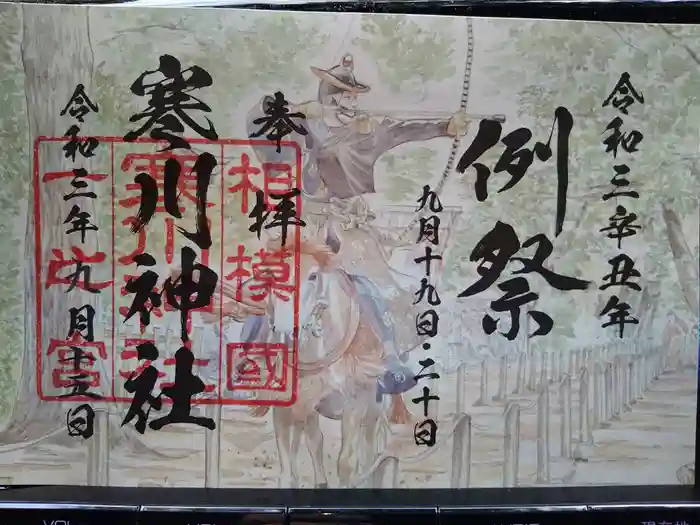 令和三辛丑年
例祭
九月十九日・二十日
奉拝
寒川神社
令和三年九月十五日
相模國
寒川神社
一之宮